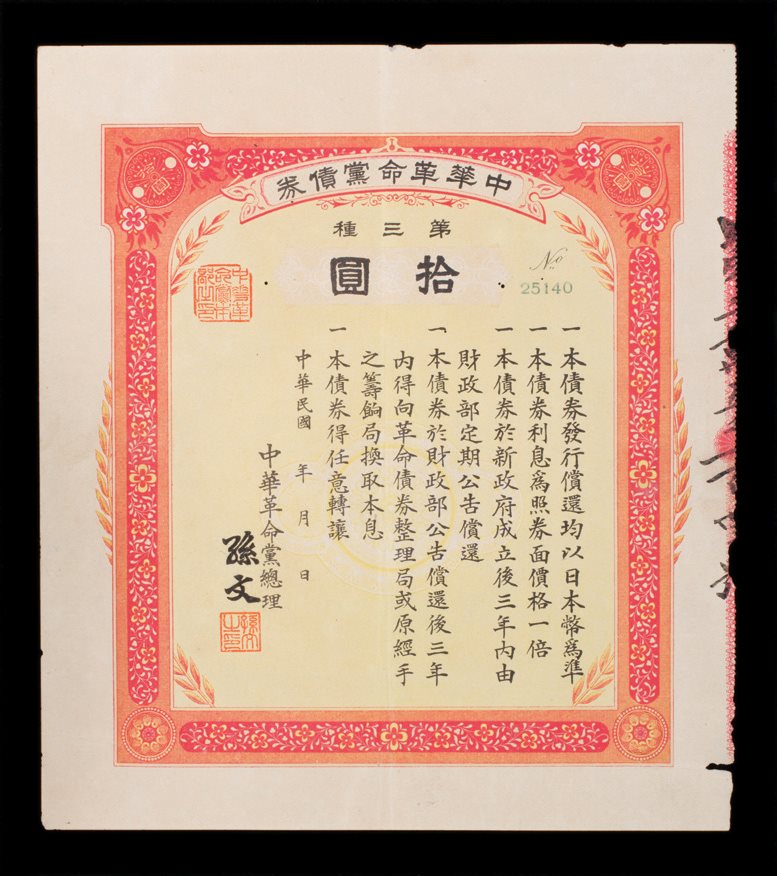 中華革命黨債券
第三種
拾圓
No
25140
一本債券發行償還均以日本幣爲準
一本債券利息爲照券面價格一倍
一本債券於新政府成立後三年內由
財政部定期公告償還
一本債券於財政部公告償還後三年
內得向革命債券整理局或原經手
之籌餉局換取本息
一本債券得任意轉讓
中華民國 年 月 日
中華革命黨總理
孫文
孫文之印